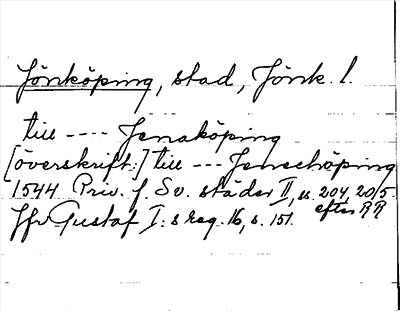 Jönköping, stad, Jönk. l.
till ---- Jenaköping
[överskrift:] till --- Jenechöping
1544 Priv. f. Sv. städer II, s. 204, 205.
efter RR
Jfr Gustaf I:s reg. 16, s. 151.